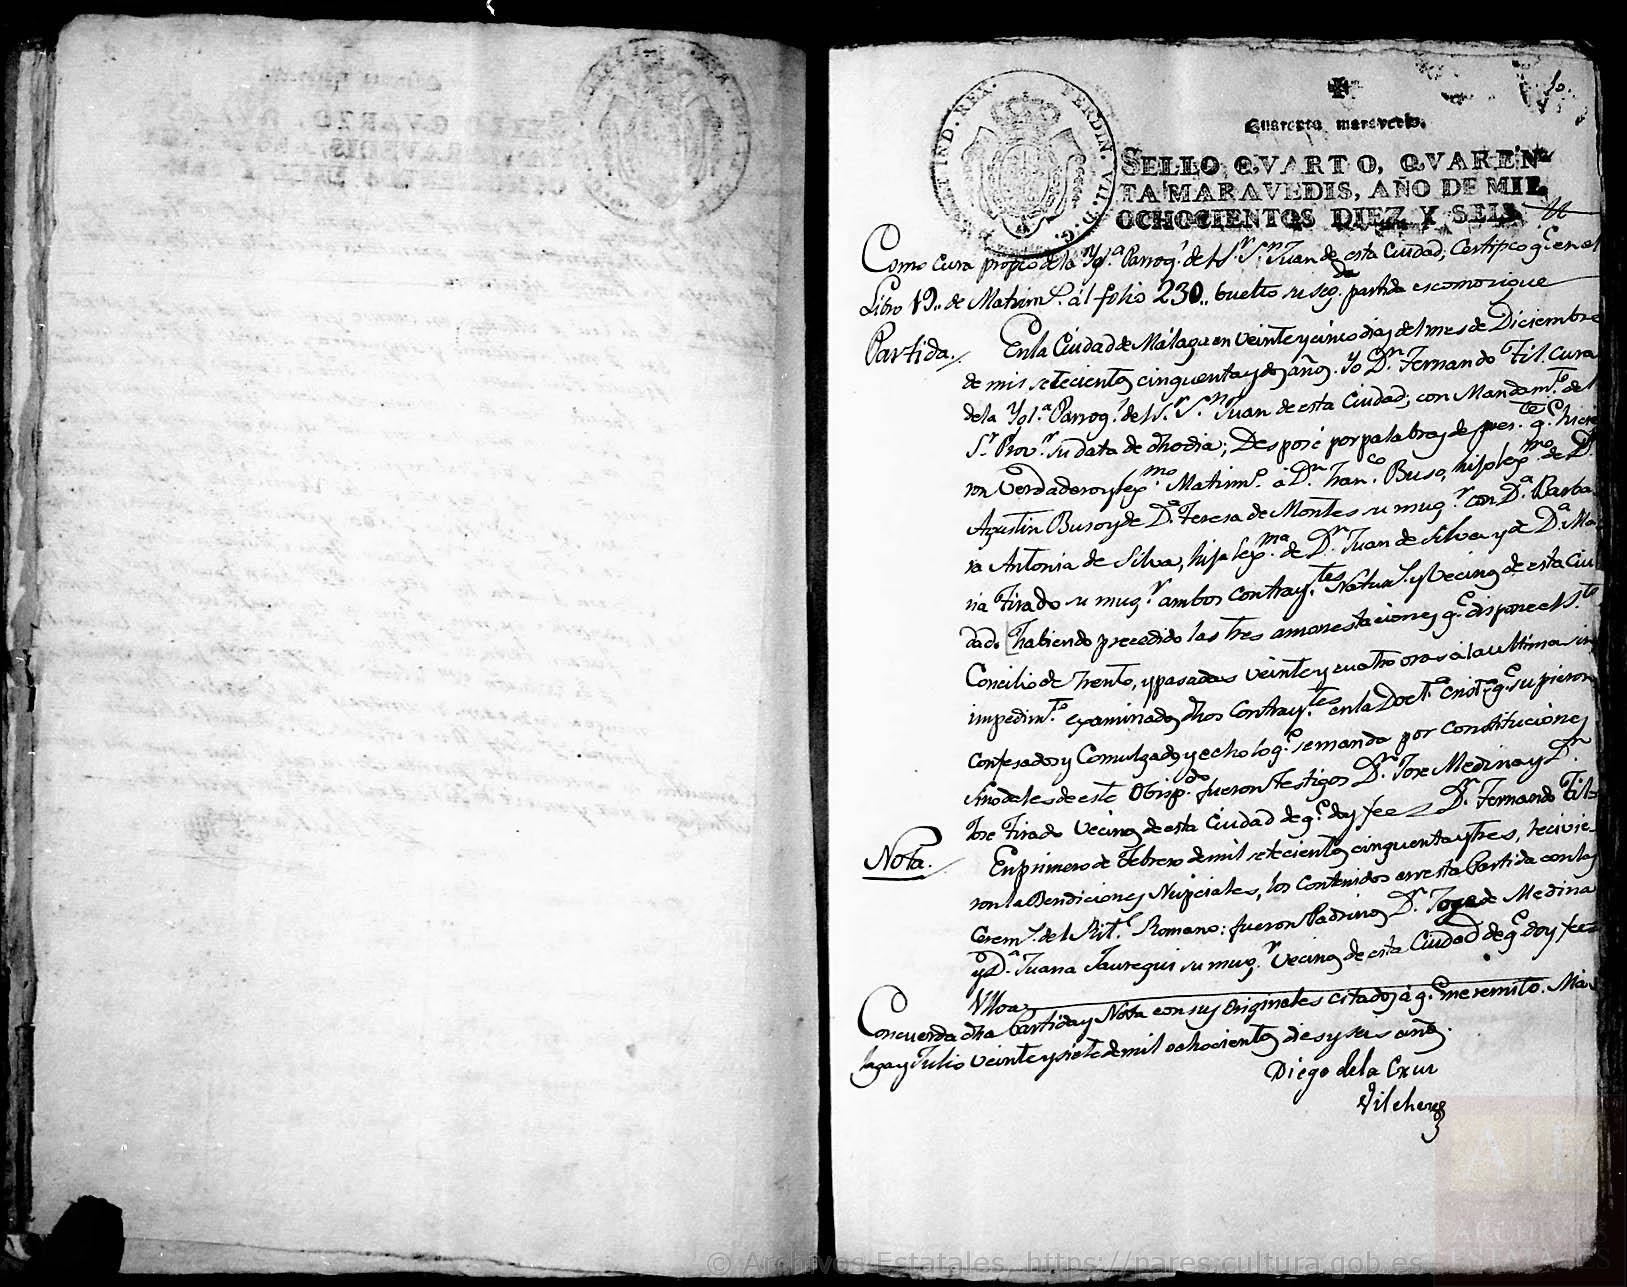 10.
Quarenta maravedis.
SELLO QVARTO, QVAREN-
TA MARAVEDIS, AÑO DE MIL
OCHOCIENTOS DIEZ Y SEIS
FERDIN. VII. D. G. IND. REX.
Como cura propio de la Ygl.ª Parroq.l del S.r S.n Juan de esta Ciudad; Certifico q.e en el
Libro 19.. de Matrim.s al folio 230.. buelto su seg.da partida es como sigue
Partida. En la Ciudad de Málaga en veinte y cinco dias del mes de Diciembre
de mil setecientos cinquenta y dos años. Yo D.n Fernando Gil. Cura
de la Ygl.ª Parroq.l del S.r S.n Juan de esta Ciudad; con Mandam.to del
S.r Prov.r su data de dho dia; Desposé por palabras de pres.te q.e hicie
ron verdadero y leg.mo Matrim.o a D.n Fran.co Buso, hijo leg.mo de D.n
Agustin Buso y de D.ª Teresa de Montes su mug.r con D.ª Barba
ra Antonia de Silva, hija leg.ma de D.n Juan de Silva y de D.ª Ma
ria Tirado su mug.r ambos contray.tes Natur.s y Vecinos de esta Ciu
dad. habiendo precedido las tres amonestaciones q.e dispone el S.to
Concilio de Trento, y pasadas veinte y cuatro oras a la ultima sin
impedim.to examinados dhos Contray.tes en la Doct.ª crist.ª q.e supieron
Confesados y Comulgados y echo lo q.e se manda por Constituciones
Sinodales de este Obisp.do fueron testigos D.n Jose Medina y D.n
Jose Tirado Vecinos de esta Ciudad de q.e doy fee D.n Fernando Gil
Nota. En primero de Febrero de mil setecientos cinquenta y tres, recivie
ron las Bendiciones Nupciales, los Contenidos en esta Partida con las
Cerem.s del Rit.l Romano: fueron Padrinos D.n Jose de Medina
y D.ª Juana Jauregui su mug.r vecinos de esta Ciudad de q.e doy fee
Ulloa
Concuerda dha Partida y Nota con sus Originales citados á q.e me remito. Ma
laga y Julio veinte y siete de mil ochocientos dies y seis años.
Diego de la Cruz
Vilches
© Archivos Estatales, https://pares.cultura.gob.es
AE
ARCHIVOS
ESTATALES